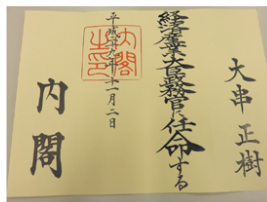 大串正樹
経済産業大臣政務官に任命する
平成二十九年十一月二日
内閣
内閣之印